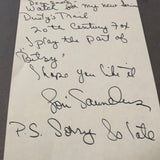 Watch for my new series
Dusty's Trail
20th Century Fox
I play the part of
"Betsy"
I hope you like it
Lori Saunders
P.S. Sorry So Late